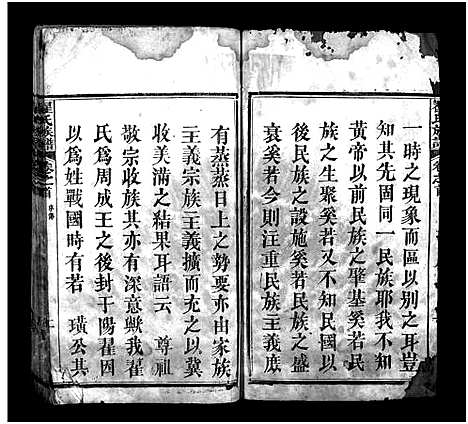 一時之現象而區以別之耳豈
知其先固同一民族耶我不知
黃帝以前民族之肇基奚若民
族之生聚奚若又不知民國以
後民族之設施奚若民族之盛
衰奚若今則注重民族主義庶
有蒸蒸日上之勢要亦由家族
主義宗族主義擴而充之以冀
收美滿之結果耳語云　尊祖
敬宗收族其亦有深意歟我翟
氏爲周成王之後封于陽翟因
以爲姓戰國時有若　璜公其
翟氏族譜
卷之首